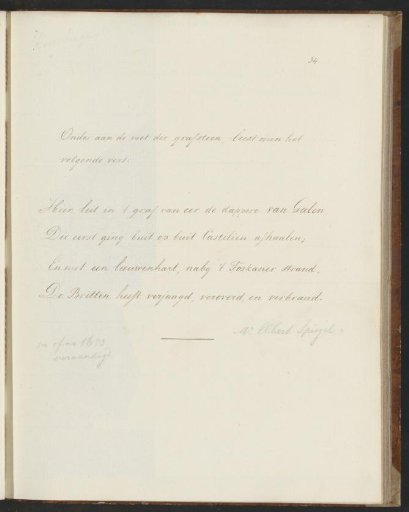 34
Onder aan de voet der grafsteen leest men het
volgende vers:
Hier leit in 't graf van eer de dappere van Galen
Die eerst ging buit op buit Castilien afhaalen,
En met een leeuwenhart, naby 't Toskaner strand,
De Britten heeft verjaagd, veroverd, en verbrand.
Mr Albert Spiegel
1653
vervaardigd